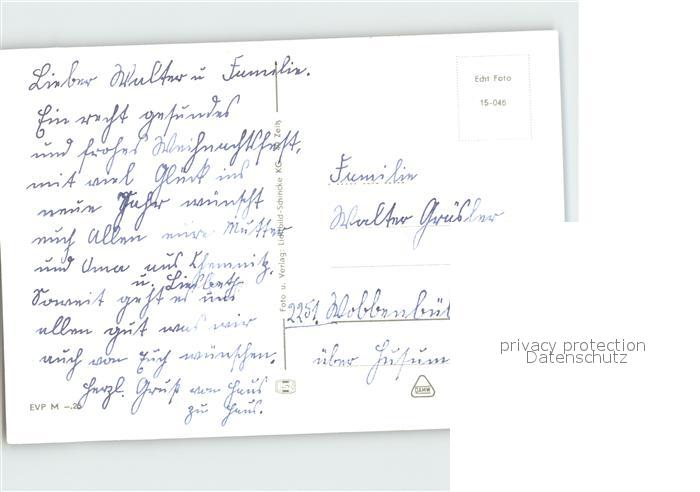 Lieber Walter u Familie.
Ein recht gesundes
und frohes Weihnachtsfest,
mit viel Glück ins
neue Jahr wünscht
euch Allen eure Mutter
und Oma aus Chemnitz.
u. Liesbeth
Soweit geht es uns
allen gut was wir
auch von Euch wünschen.
Herzl. Gruß von Haus
zu Haus.
EVP M –.25
Foto u. Verlag: Lichtbild-Schincke KG Zeitz
Echt Foto
15-046
Familie
Walter Gräsler
2251 Wobbenbül
über Husum
DAMW
privacy protection
Datenschutz